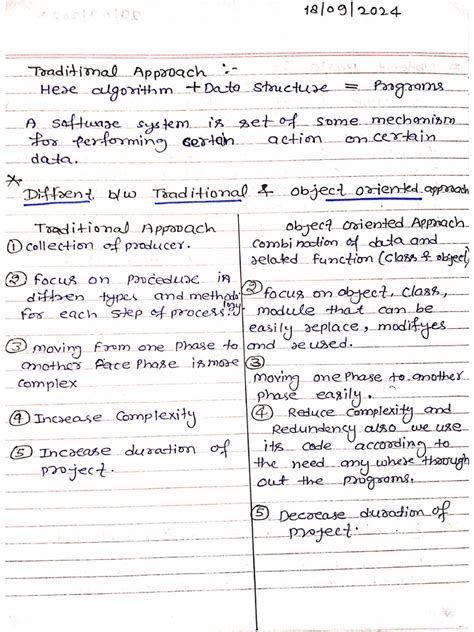 18/09/2024
Traditional Approach :-
Here algorithm + Data Structure = Programs
A Software system is set of some mechanism
for performing certain action on certain
data.
*
Diffrent b/w Traditional & object oriented approach
Traditional Approach
① collection of producer.
② focus on procedure in
diffren types and methods
for each step of process.
③ moving from one phase to
another phase is more
complex
④ Increase Complexity
⑤ Increase duration of
project.
object oriented Approach
Combination of data and
related function (class & object)
② focus on object, class,
module that can be
easily replace, modifyes
and reused.
③
moving one phase to another
phase easily.
④ Reduce complexity and
Redundency also we use
its code according to
the need any where through
out the programs.
⑤ Decrease duration of
project.